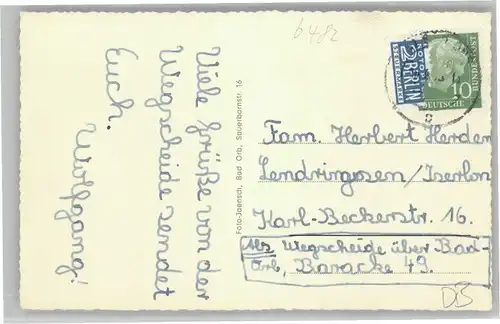 6482
Viele Grüße von der
Wegscheide sendet
Euch.
Wolfgang!
Foto-Jaensch, Bad Orb, Sauerbornstr. 16
NOTOPFER
2 BERLIN
STEUERMARKE
10
BUNDESPOST
DEUTSCHE
Fam. Herbert Herden
Lendringsen/Iserlon
Karl-Beckerstr. 16.
Abs. Wegscheide über Bad-
Orb, Baracke 49.
DB